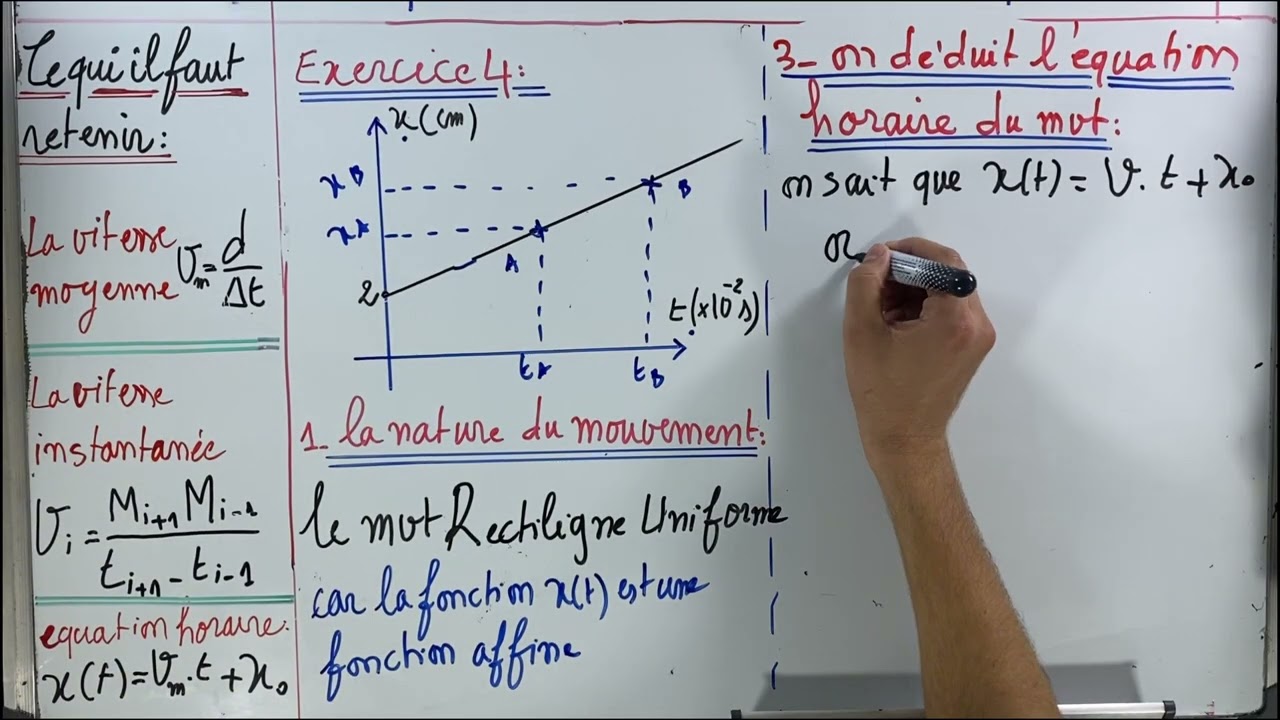 Ce qui il faut
retenir:
La vitesse
moyenne
Vm = d/Δt
La vitesse
instantanée
Vi = Mi+1 Mi-1 / ti+1 - ti-1
equation horaire:
x(t)=Vm.t + x0
Exercice 4:
x(cm)
xB
xA
B
A
2
t(×10^-2 s)
tA
tB
1- la nature du mouvement:
le mvt Rectiligne Uniforme
car la fonction x(t) est une
fonction affine
3- on déduit l'équation
horaire du mvt:
on sait que x(t) = V. t + x0